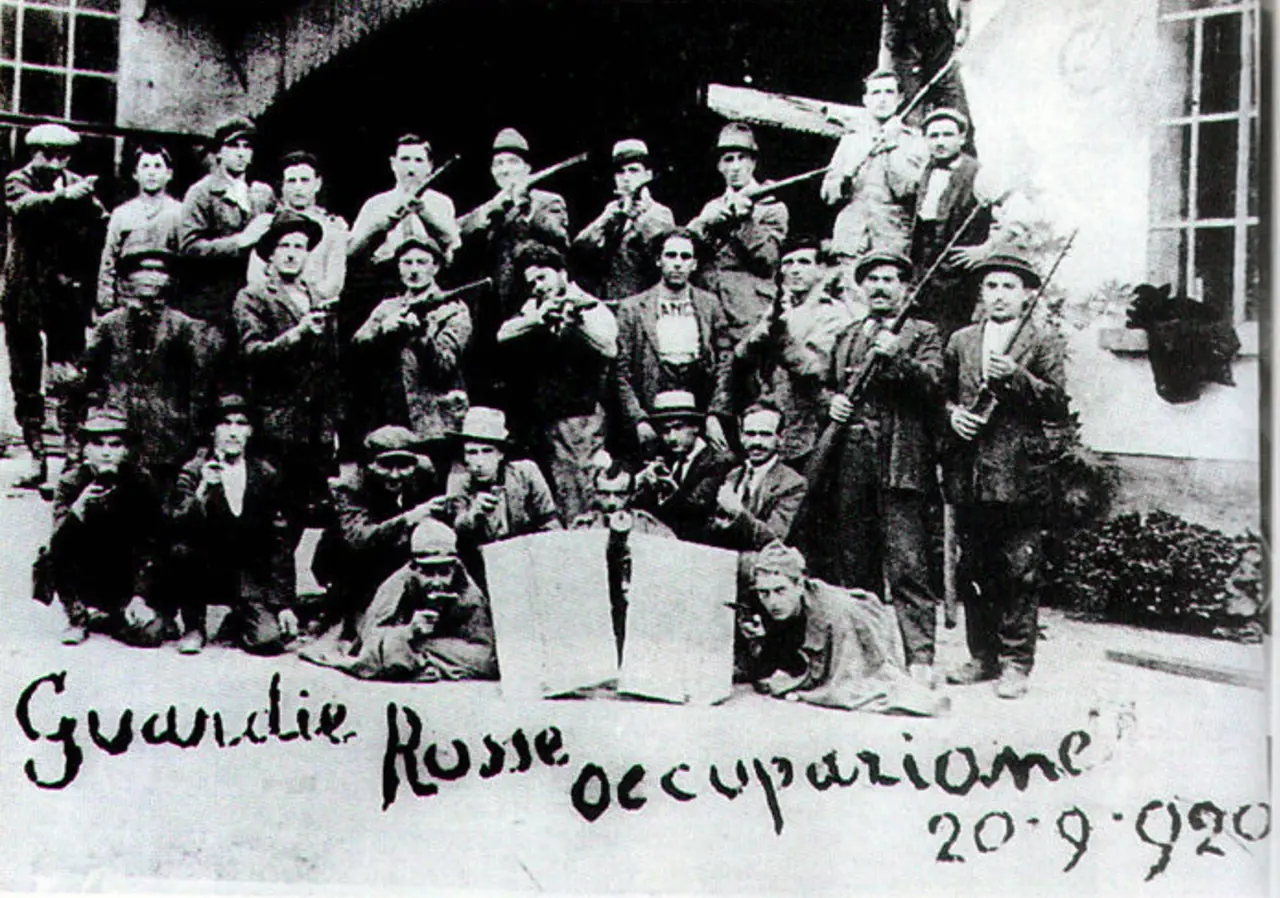 Guardie Rosse occupazione
20·9·920